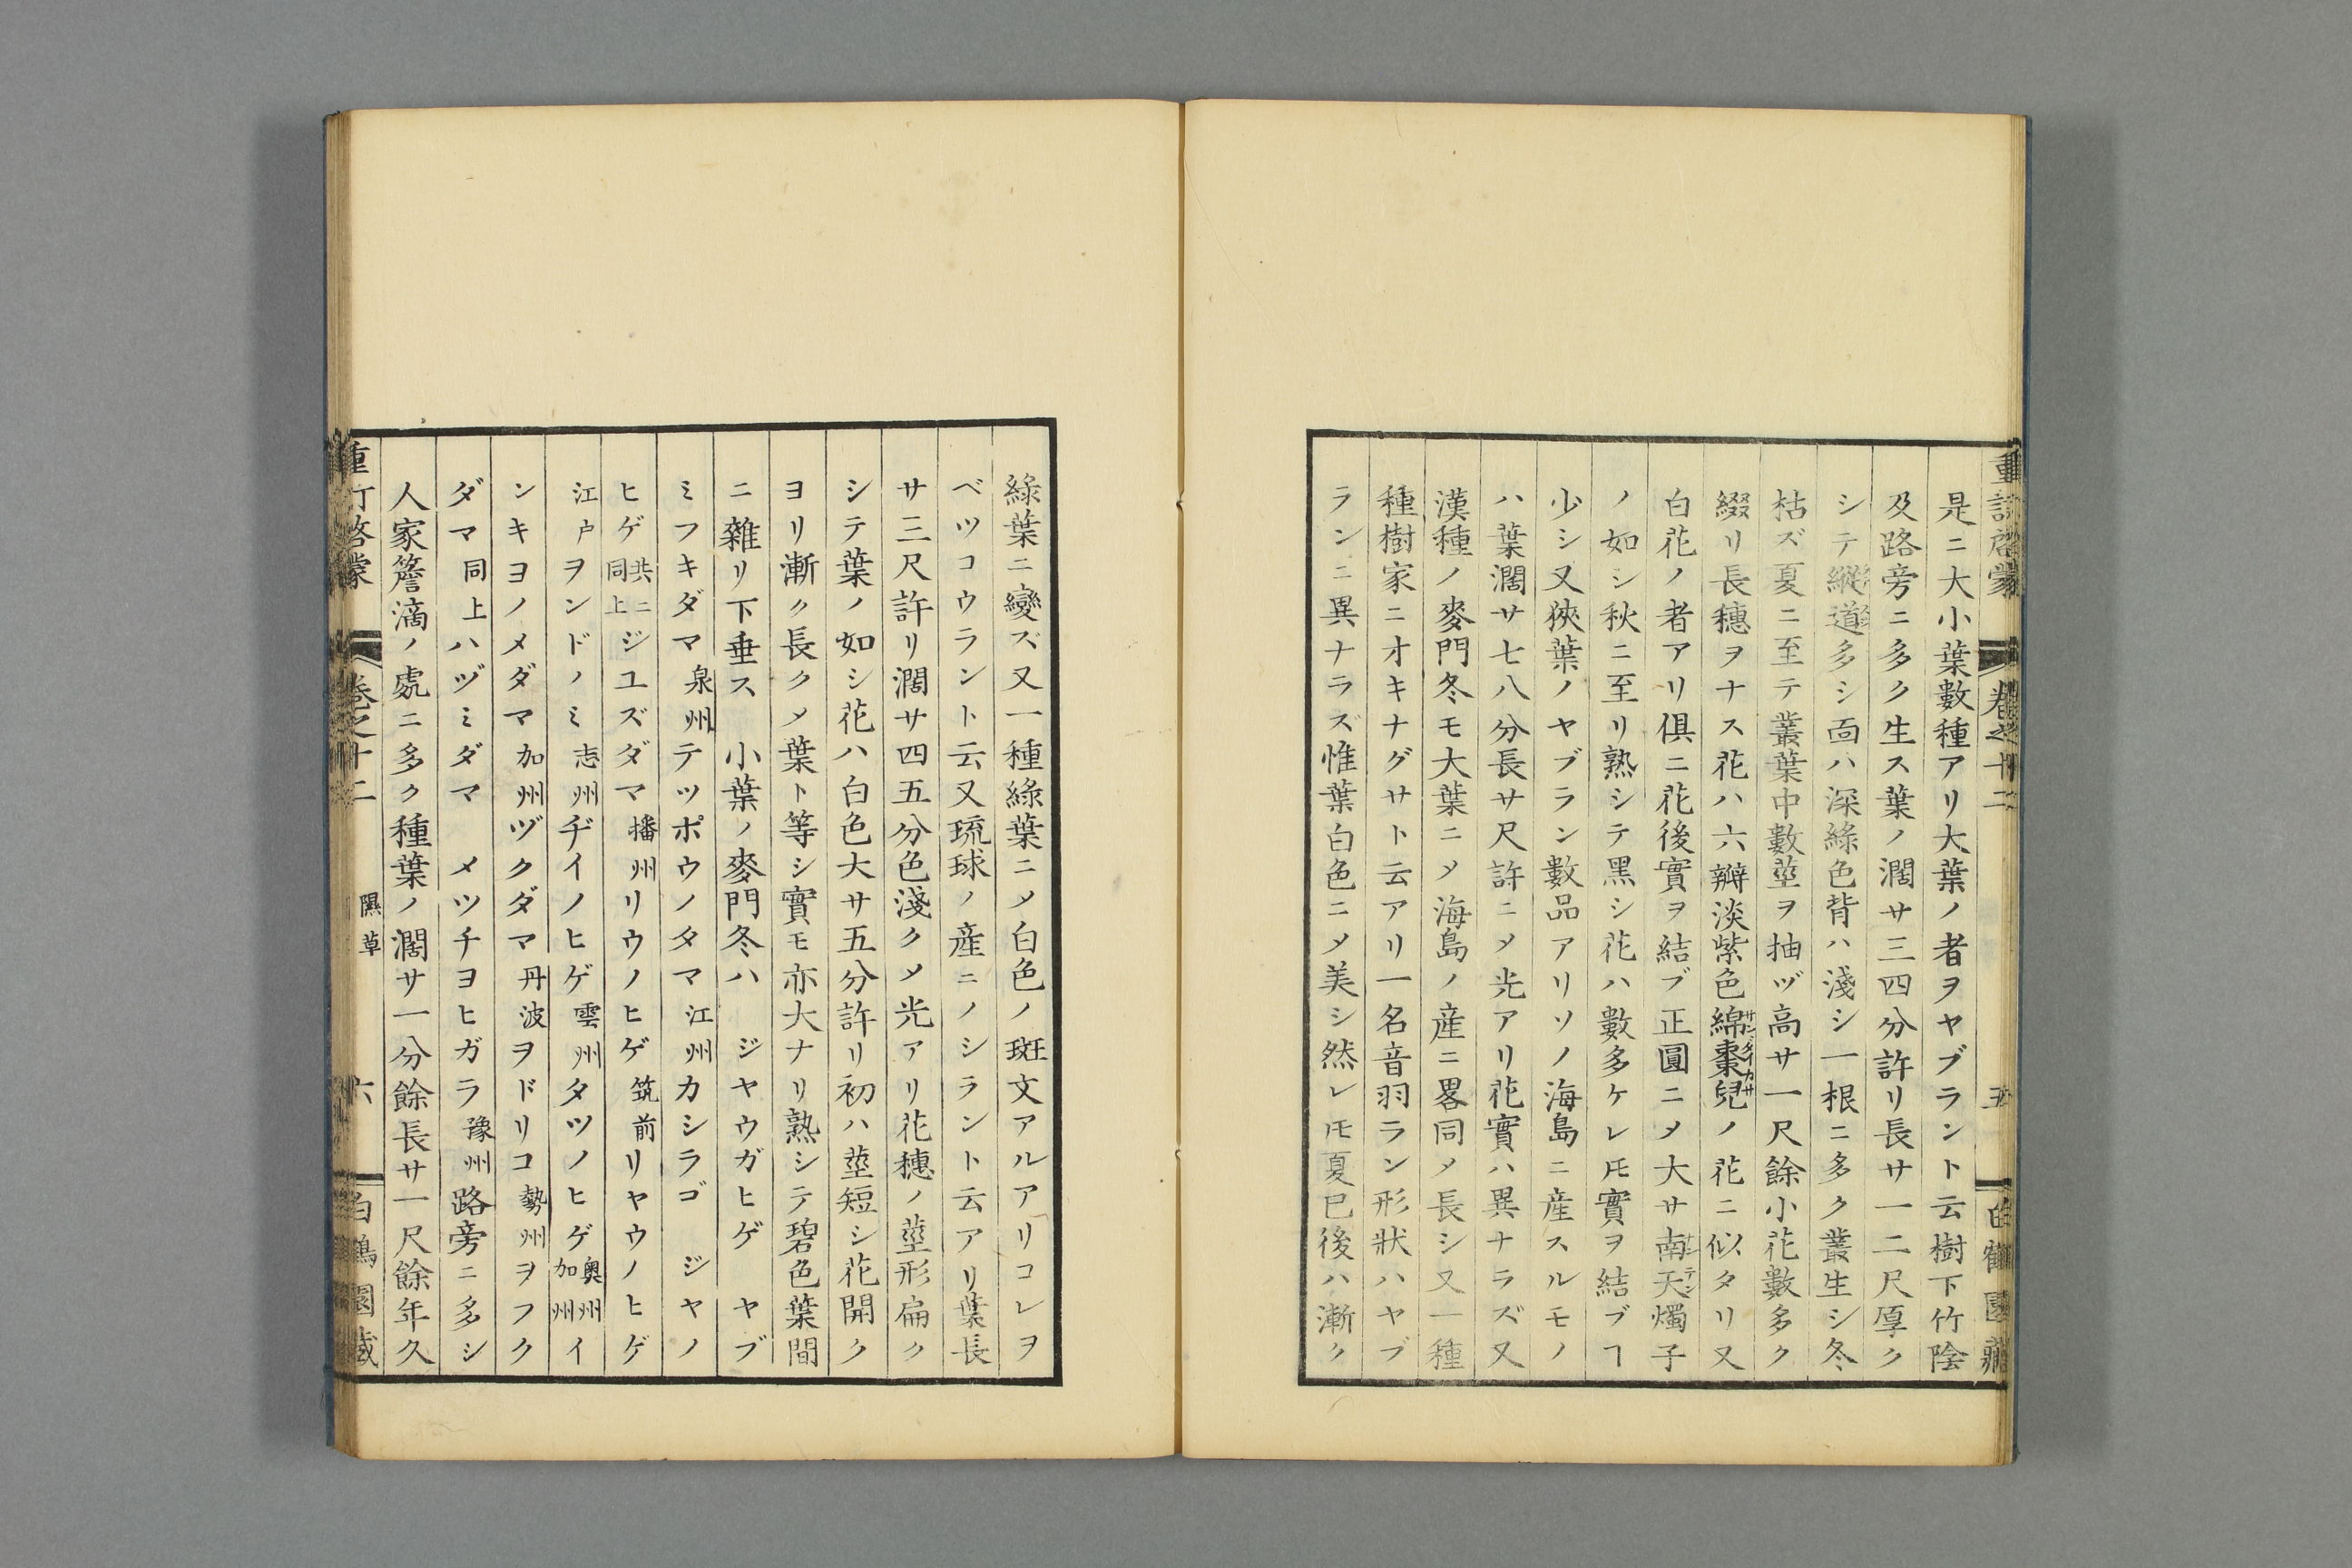 重訂啓蒙 卷之十二 五
是ニ大小葉數種アリ大葉ノ者ヲヤブラント云樹下竹陰
及路旁ニ多ク生ス葉ノ濶サ三四分許リ長サ一二尺厚ク
シテ縱道多シ面ハ深綠色背ハ淺シ一根ニ多ク叢生シ冬
枯ズ夏ニ至テ叢葉中數莖ヲ抽ヅ高サ一尺餘小花數多ク
綴リ長穗ヲナス花ハ六瓣淡紫色綿棗兒ノ花ニ似タリ又
白花ノ者アリ俱ニ花後實ヲ結ブ正圓ニメ大サ南天燭子
ノ如シ秋ニ至リ熟シテ黑シ花ハ數多ケレ𪜈實ヲ結ブヿ
少シ又狹葉ノヤブラン數品アリソノ海島ニ産スルモノ
ハ葉濶サ七八分長サ尺許ニメ光アリ花實ハ異ナラズ又
漢種ノ麥門冬モ大葉ニメ海島ノ産ニ畧同メ長シ又一種
種樹家ニオキナグサト云アリ一名音羽ラン形狀ハヤブ
ランニ異ナラズ惟葉白色ニメ美シ然レ𪜈夏已後ハ漸ク
綠葉ニ變ズ又一種綠葉ニメ白色ノ斑文アルアリコレヲ
ベツコウラント云又琉球ノ産ニノシラント云アリ葉長
サ三尺許リ濶サ四五分色淺クメ光アリ花穗ノ莖形扁ク
シテ葉ノ如シ花ハ白色大サ五分許リ初ハ莖短シ花開ク
ヨリ漸ク長クメ葉ト等シ實モ亦大ナリ熟シテ碧色葉間
ニ雜リ下垂ス 小葉ノ麥門冬ハ ジヤウガヒゲ ヤブ
ミフキダマ泉州テツポウノタマ江州カシラゴ ジヤノ
ヒゲ共ニ同上ジユズダマ播州リウノヒゲ筑前リヤウノヒゲ
江戸ヲンドノミ志州ヂイノヒゲ雲州タツノヒゲ奥州加州イ
ンキヨノメダマ加州ヅクダマ丹波ヲドリコ勢州ヲフク
ダマ同上ハヅミダマ メツチヨヒガラ豫州路旁ニ多シ
人家簷滴ノ處ニ多ク種葉ノ濶サ一分餘長サ一尺餘年久
卷之十二 隰草 六